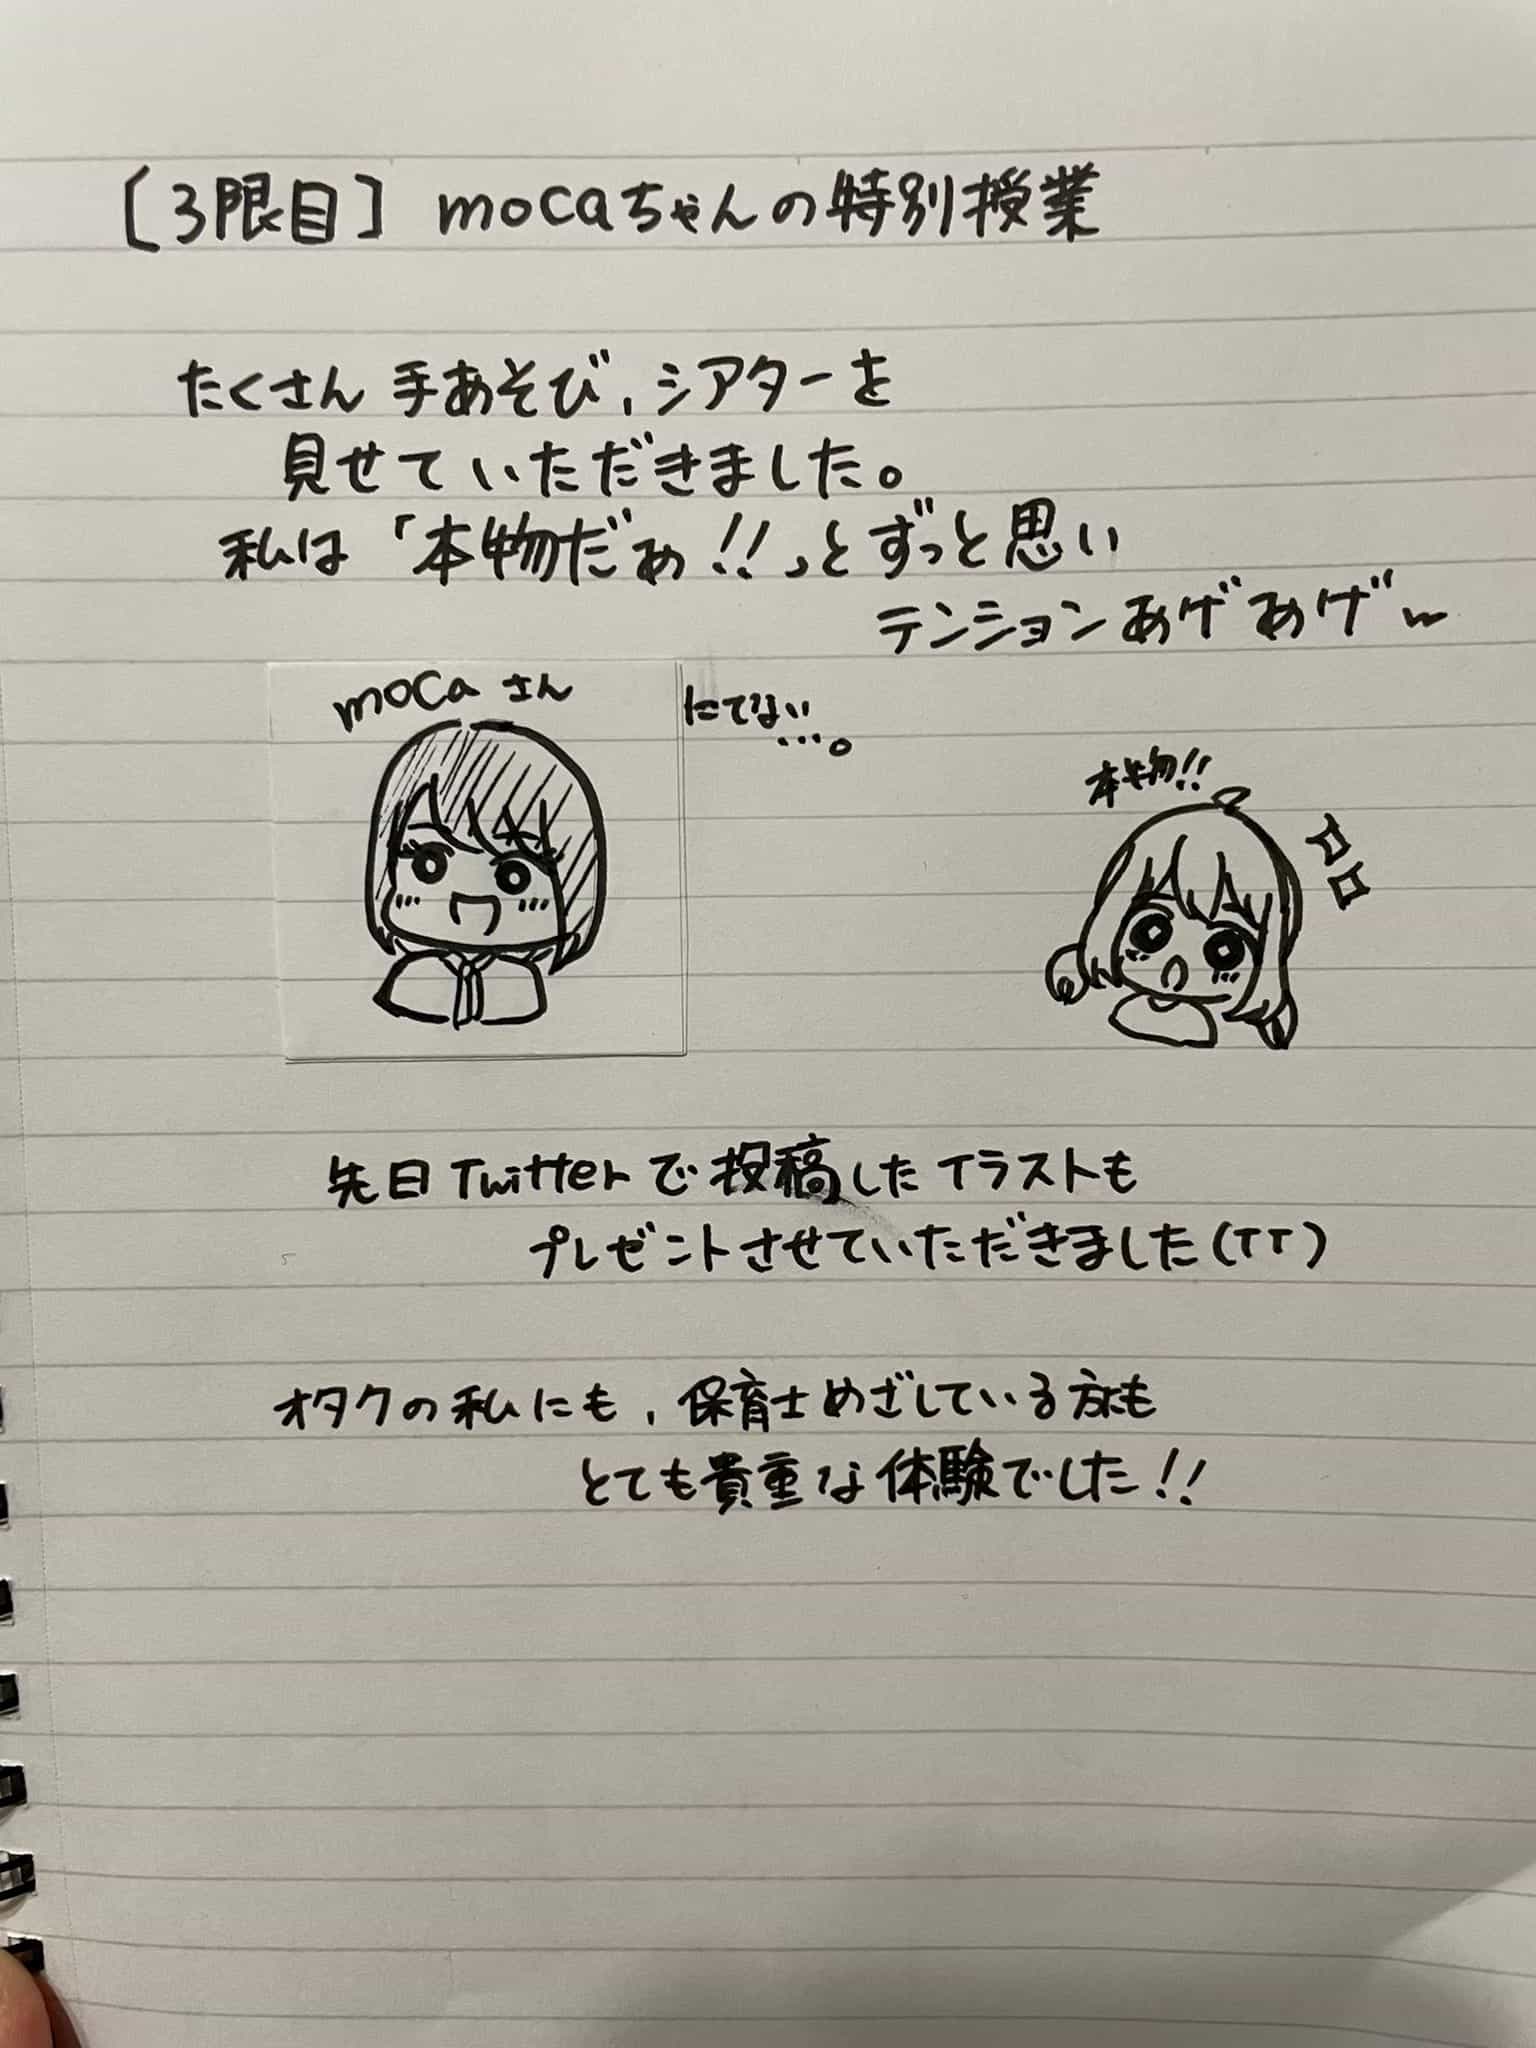 [3限目] mocaちゃんの特別授業
たくさん 手あそび、シアターを
見せていただきました。
私は「本物だぁ!!」とずっと思い
テンションあげあげ〜
mocaさん
にてない…。
本物!!
先日Twitterで投稿したイラストも
プレゼントさせていただきました(TT)
オタクの私にも、保育士めざしている方にも
とても貴重な体験でした!!